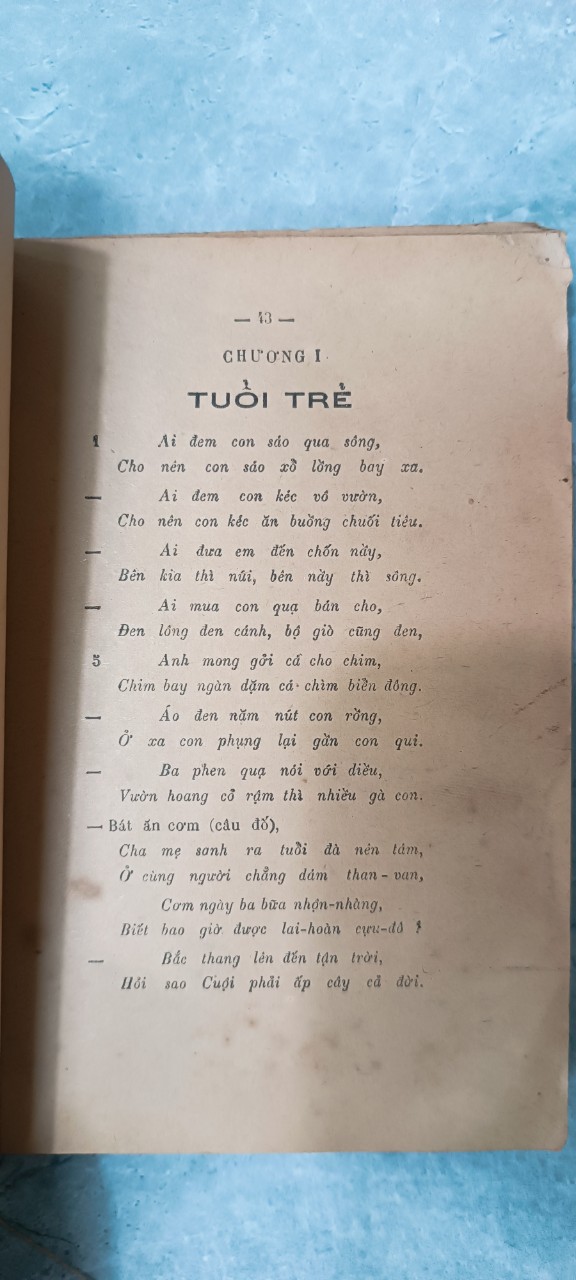 — 43 —
CHƯƠNG I
TUỔI TRẺ
1 Ai đem con sáo qua sông,
Cho nên con sáo xổ lồng bay xa.
— Ai đem con kéc vô vườn,
Cho nên con kéc ăn buồng chuối tiêu.
— Ai đưa em đến chốn nầy,
Bên kia thì núi, bên nầy thì sông.
— Ai mua con quạ bán cho,
Đen lông đen cánh, bộ giò cũng đen,
5 Anh mong gởi cá cho chim,
Chim bay ngàn dặm cá chìm biển đông.
— Áo đen năm nút con rồng,
Ở xa con phụng lại gần con qui.
— Ba phen quạ nói với diều,
Vườn hoang cỏ rậm thì nhiều gà con.
— Bát ăn cơm (câu đố),
Cha mẹ sanh ra tuổi đà nên tám,
Ở cùng người chẳng dám than-van,
Cơm ngày ba bữa nhộn-nhàng,
Biết bao giờ được lai-hoàn cựu-đô ?
— Bắc thang lên đến tận trời,
Hỏi sao Cuội phải ấp cây cả đời.